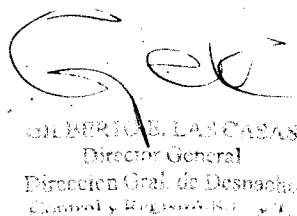 GILBERTO E. LAS CASAS
Director General
Direccion Gral. de Despacho
Control y Registro